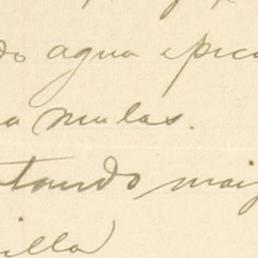 do agua e pica
a mulas.
tando maiz
illa